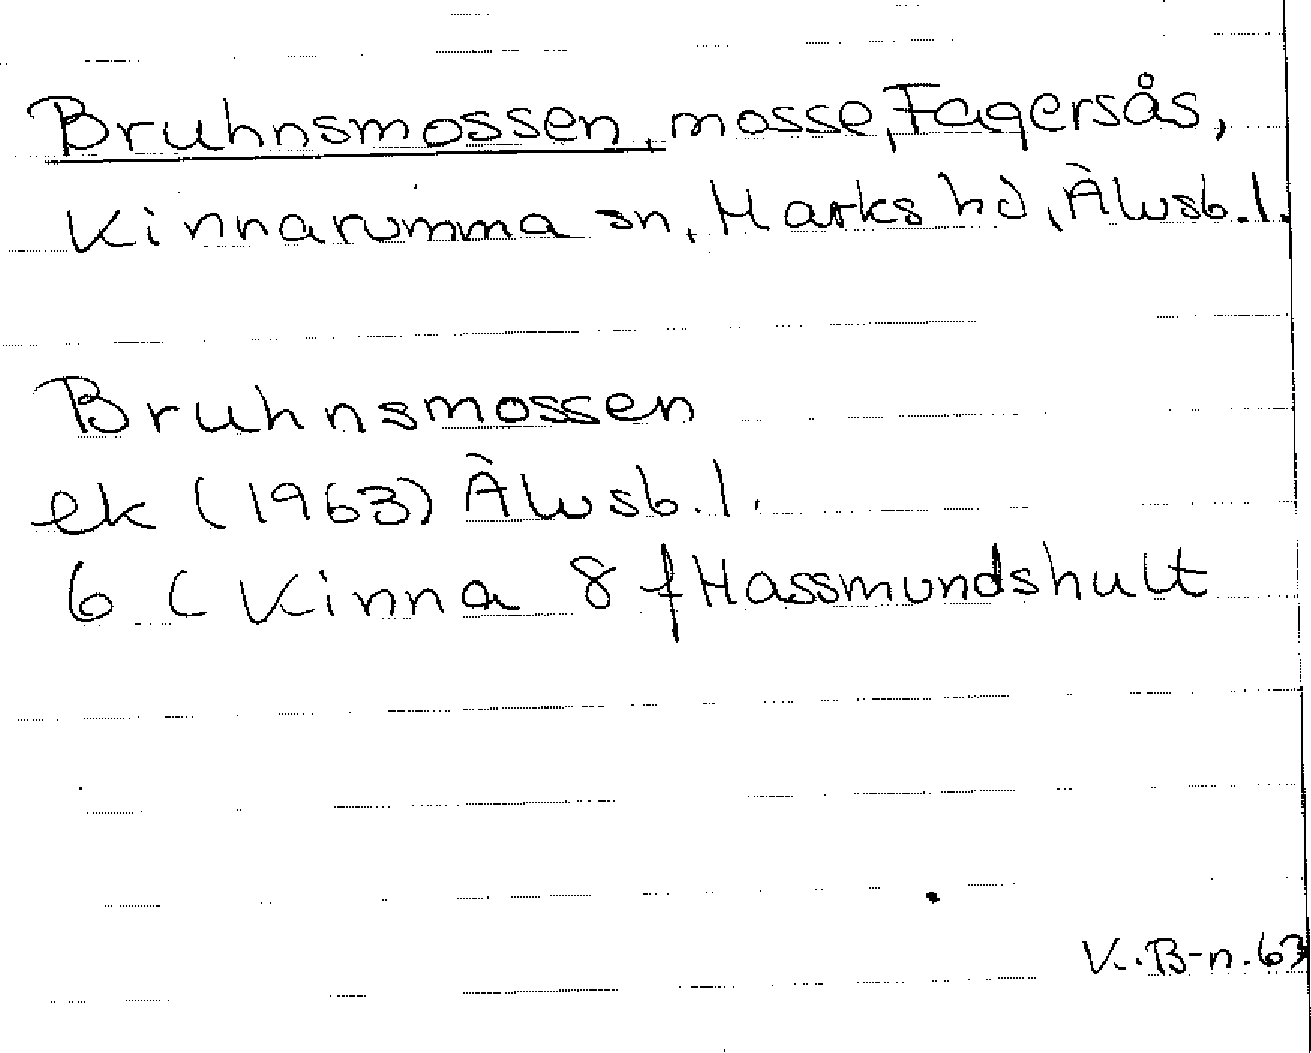 Bruhnsmossen, mosse, Fagersås,
Kinnarumma sn, Marks hd, Älvsb. l.
Bruhnsmossen
ek (1963) Älvsb. l.
6 C Kinna 8 f Hassmundshult
K. B-n. 63